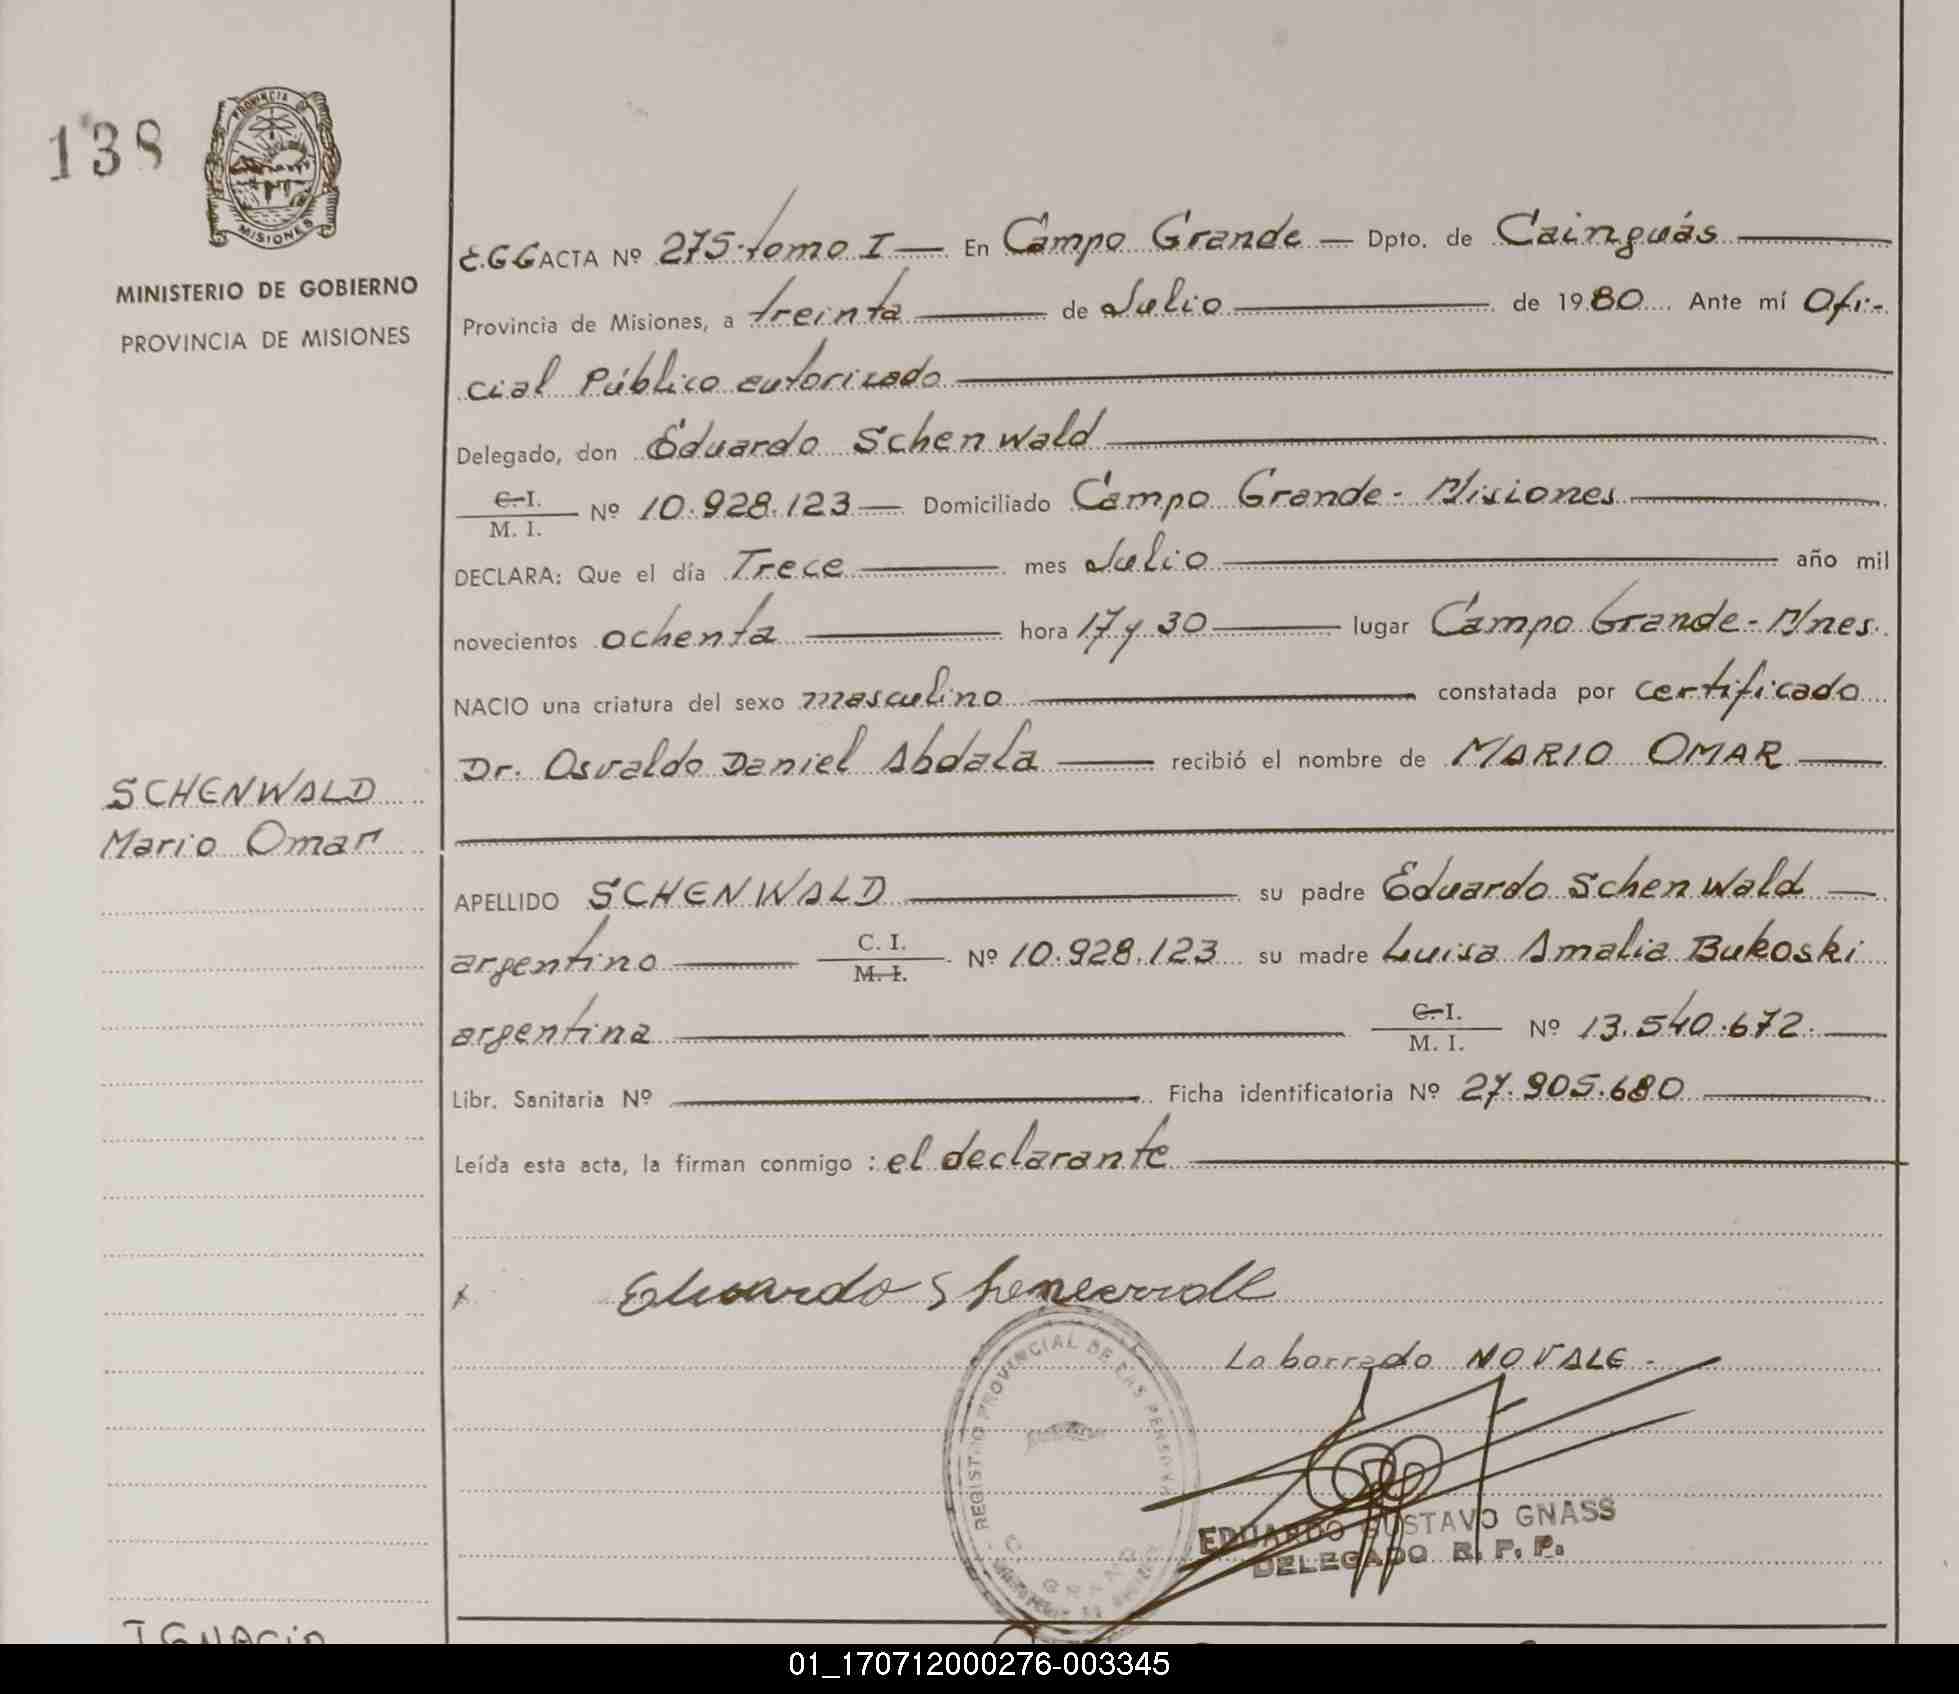 138
PROVINCIA DE
MISIONES
MINISTERIO DE GOBIERNO
PROVINCIA DE MISIONES
E.G.G ACTA Nº 275 tomo I — En Campo Grande — Dpto. de Cainguás
Provincia de Misiones, a treinta de Julio de 1980 Ante mí Ofi-
cial Público autorizado
Delegado, don Eduardo Schenwald
C. I. / M. I. Nº 10.928.123 — Domiciliado Campo Grande - Misiones
DECLARA: Que el día Trece mes Julio año mil
novecientos ochenta hora 17 y 30 lugar Campo Grande - Mnes.
NACIO una criatura del sexo masculino constatada por certificado
Dr. Osvaldo Daniel Abdala recibió el nombre de MARIO OMAR
SCHENWALD
Mario Omar
APELLIDO SCHENWALD su padre Eduardo Schenwald
argentino C. I. / M. I. Nº 10.928.123 su madre Luisa Amalia Bukoski
argentina C. I. / M. I. Nº 13.540.672.
Libr. Sanitaria Nº Ficha identificatoria Nº 27.905.680
Leída esta acta, la firman conmigo : el declarante
x Eduardo
Lo borrado NO VALE -
REGISTRO PROVINCIAL DE LAS PERSONAS
EDUARDO GUSTAVO GNASS
DELEGADO R. P. P.
IGNACIO
01_170712000276-003345